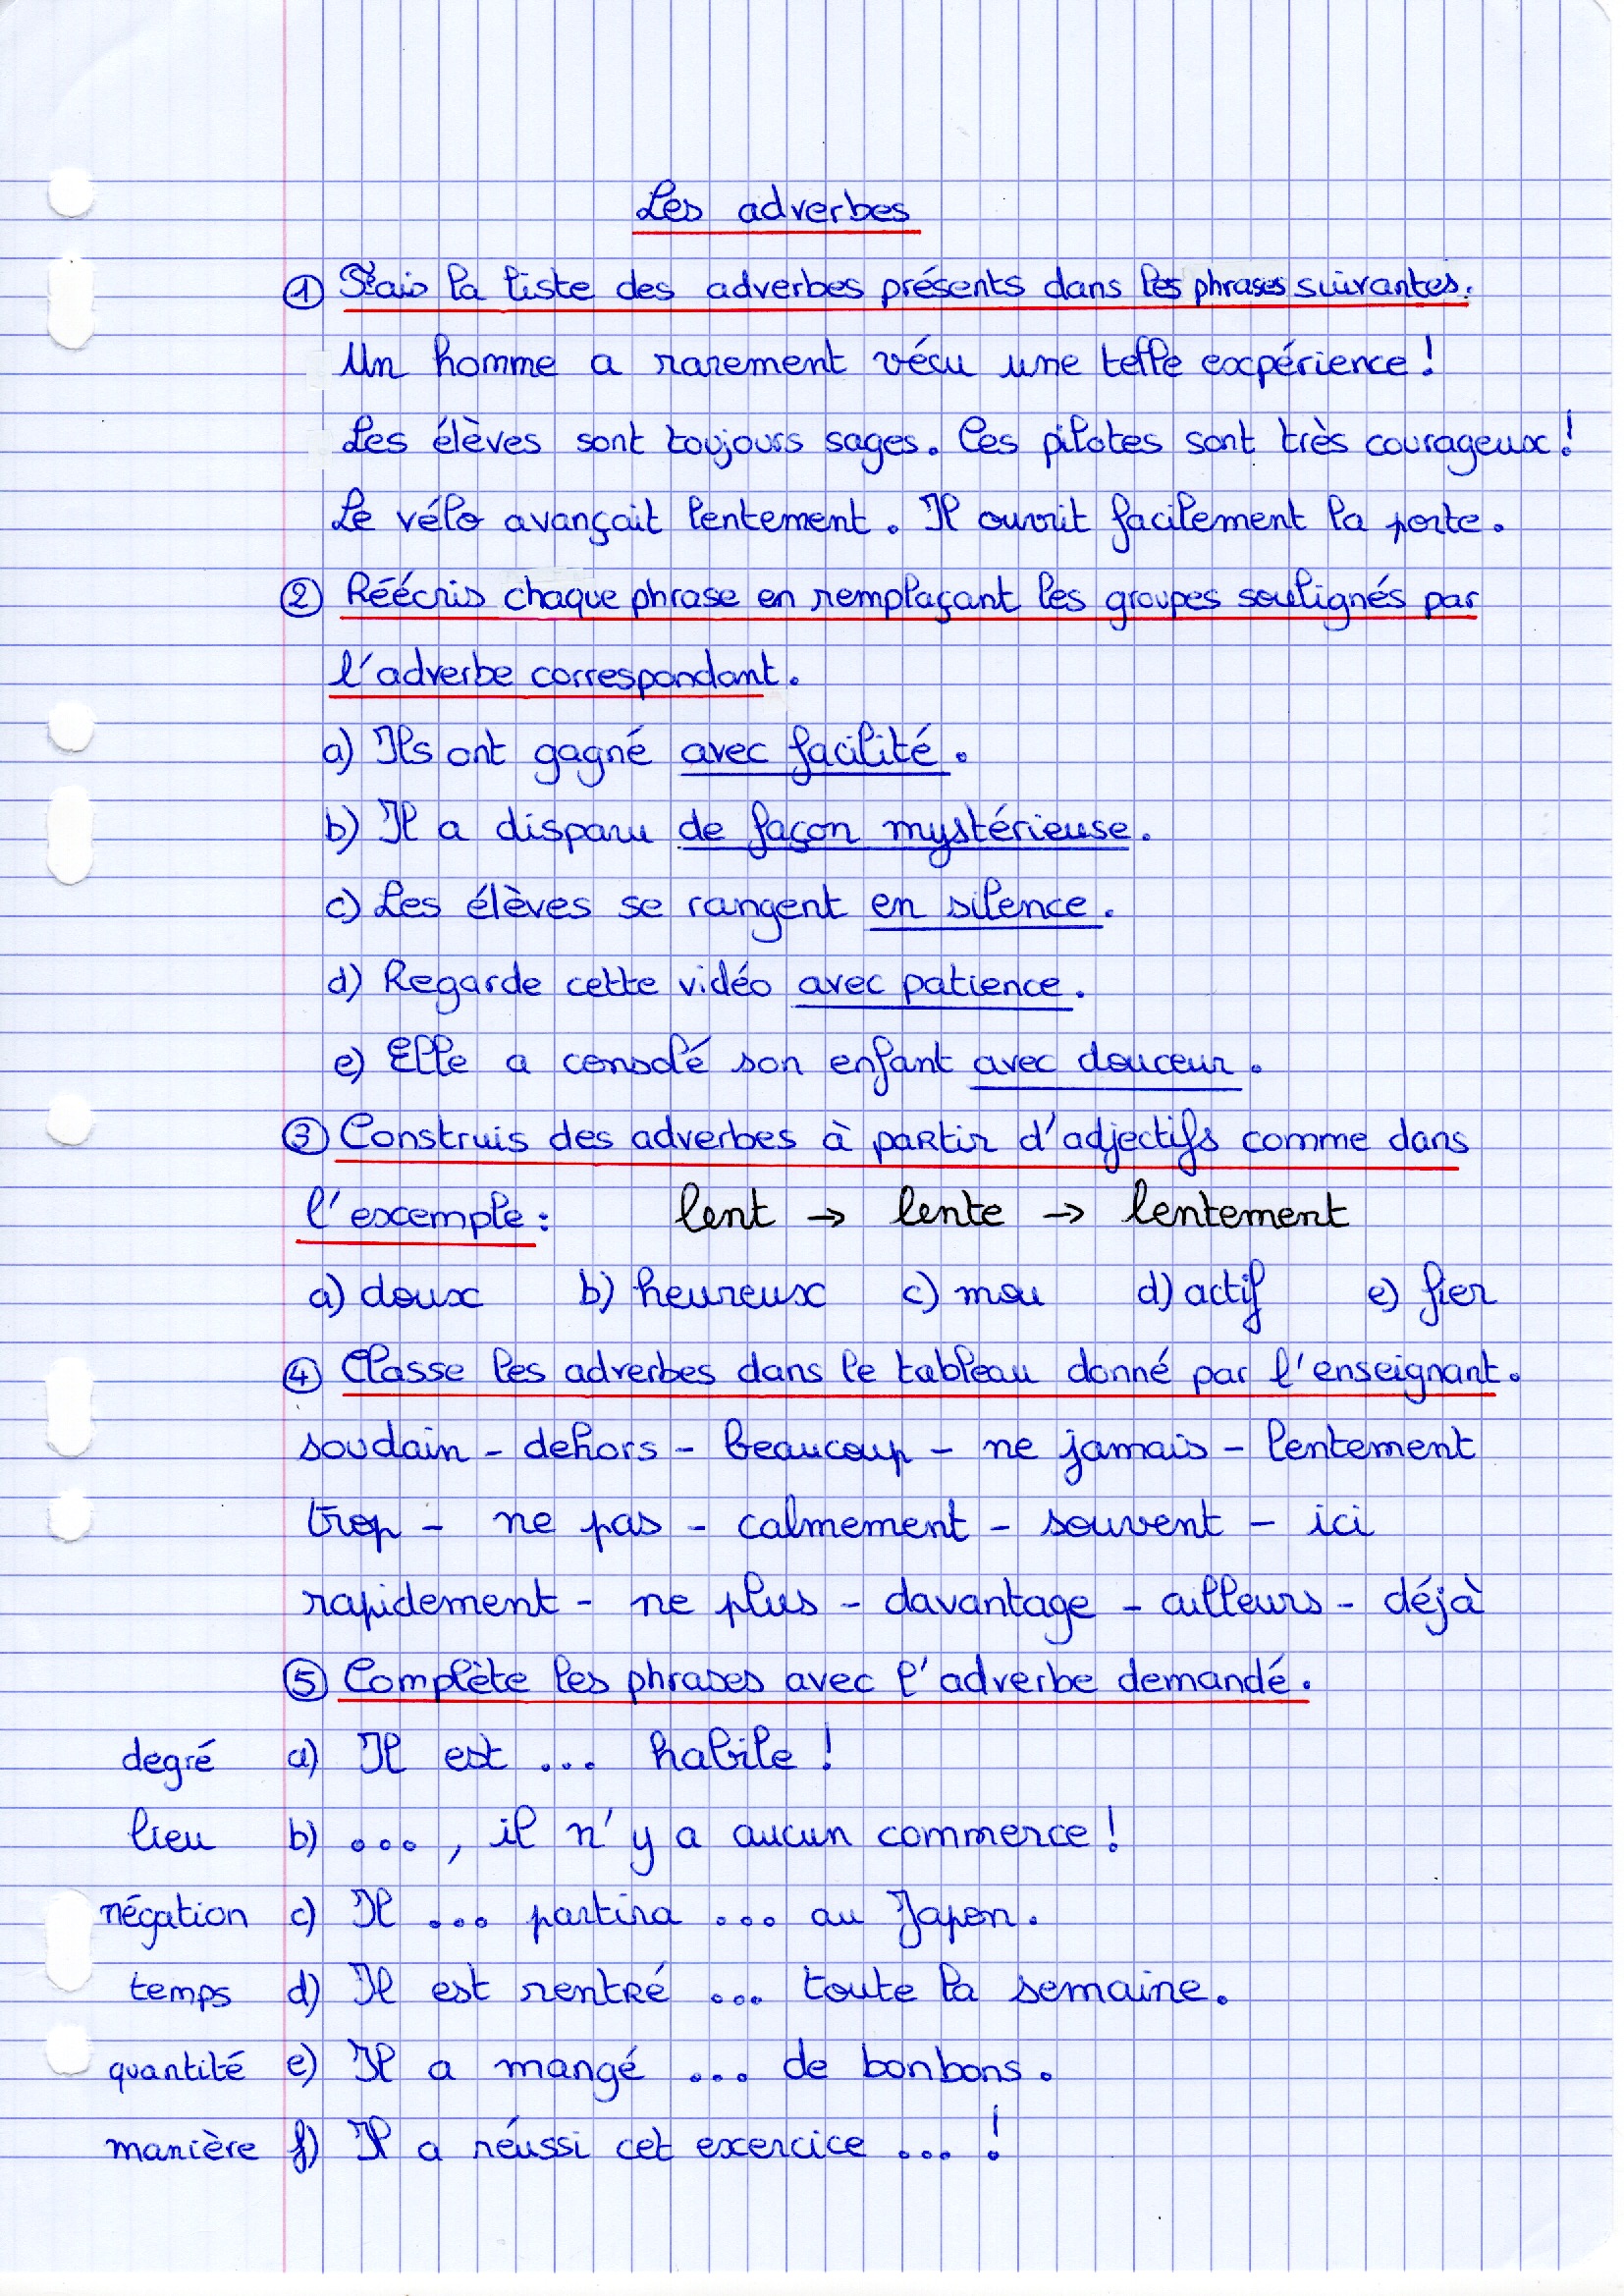 Les adverbes
① Fais la liste des adverbes présents dans les phrases suivantes.
Un homme a rarement vécu une telle expérience !
Les élèves sont toujours sages. Ces pilotes sont très courageux !
Le vélo avançait lentement. Il ouvrit facilement la porte.
② Réécris chaque phrase en remplaçant les groupes soulignés par
l'adverbe correspondant.
a) Ils ont gagné avec facilité.
b) Il a disparu de façon mystérieuse.
c) Les élèves se rangent en silence.
d) Regarde cette vidéo avec patience.
e) Elle a consolé son enfant avec douceur.
③ Construis des adverbes à partir d'adjectifs comme dans
l'exemple : lent → lente → lentement
a) doux b) heureux c) mou d) actif e) fier
④ Classe les adverbes dans le tableau donné par l'enseignant.
soudain - dehors - beaucoup - ne jamais - lentement
trop - ne pas - calmement - souvent - ici
rapidement - ne plus - davantage - ailleurs - déjà
⑤ Complète les phrases avec l'adverbe demandé.
degré a) Il est ... habile !
lieu b) ..., il n'y a aucun commerce !
négation c) Il ... partira ... au Japon.
temps d) Il est rentré ... toute la semaine.
quantité e) Il a mangé ... de bonbons.
manière f) Il a réussi cet exercice ... !